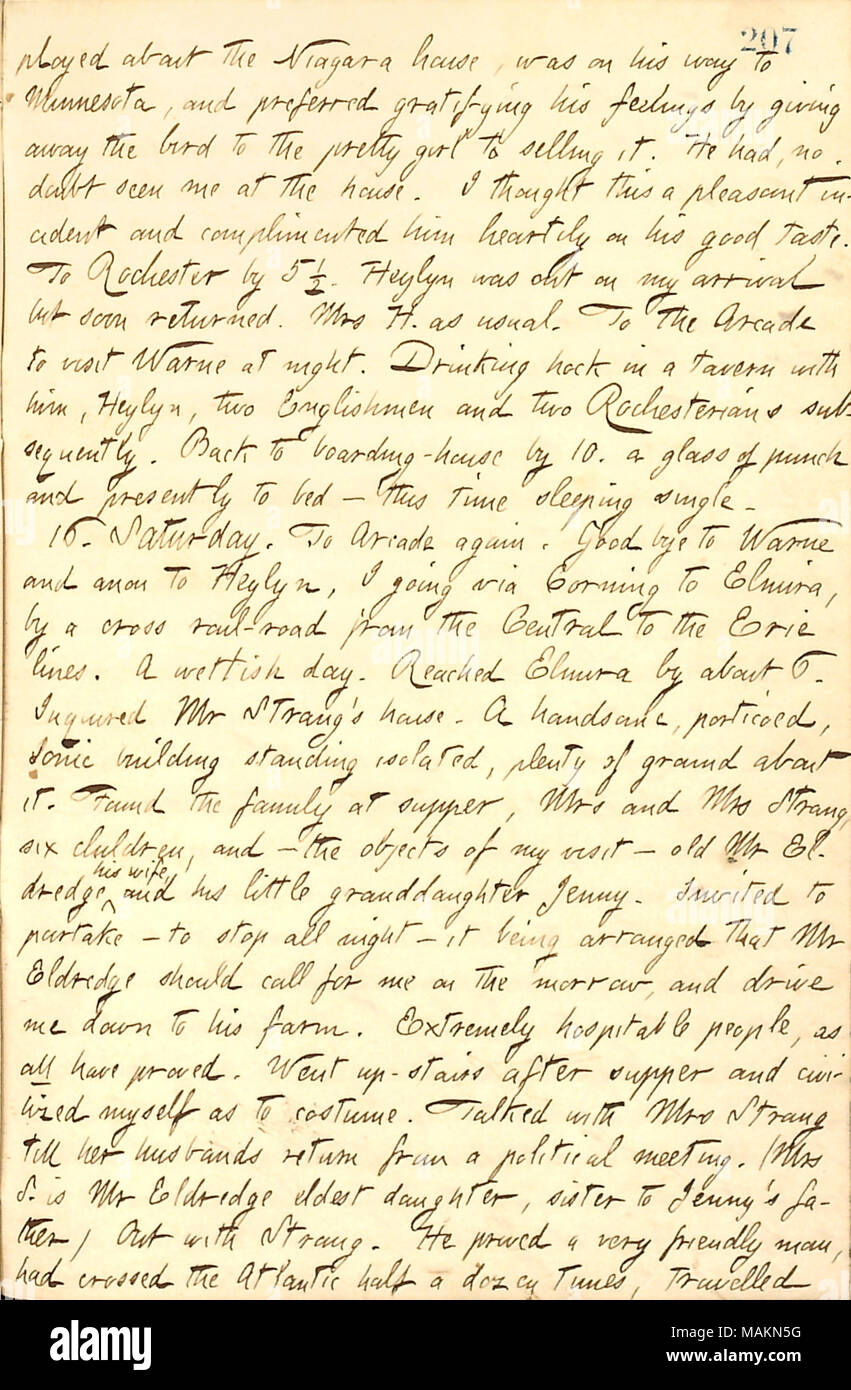 207
ployed about the Niagara house, was on his way to
Minnesota, and preferred gratifying his feelings by giving
away the bird to the pretty girl to selling it. He had, no
doubt seen me at the house. I thought this a pleasant in-
cident and complimented him heartily on his good taste.
To Rochester by 5 ½. Heylyn was out on my arrival
but soon returned. Mrs H. as usual. To the Arcade
to visit Warne at night. Drinking hock in a tavern with
him, Heylyn, two Englishmen and two Rochesterians sub-
sequently. Back to boarding-house by 10. a glass of punch
and presently to bed — this time sleeping single.
16. Saturday. To Arcade again. Good bye to Warne
and anon to Heylyn, I going via Corning to Elmira,
by a cross rail-road from the Central to the Erie
lines. A wettish day. Reached Elmira by about 6.
Inquired Mr Strang's house. A handsome, porticoed,
Ionic building standing isolated, plenty of ground about
it. Found the family at supper, Mrs and Mrs Strang,
six children, and — the objects of my visit — old Mr El-
dredge, his wife, and his little granddaughter Jenny. Invited to
partake — to stop all night — it being arranged that Mr
Eldredge should call for me on the morrow, and drive
me down to his farm. Extremely hospitable people, as
all have proved. Went up-stairs after supper and civi-
lized myself as to costume. Talked with Mrs Strang
till her husbands return from a political meeting. (Mrs
S. is Mr Eldredge eldest daughter, sister to Jenny's fa-
ther) Out with Strang. He proved a very friendly man,
had crossed the Atlantic half a dozen times, travelled
alamy
Image ID: MAKN5G
www.alamy.com